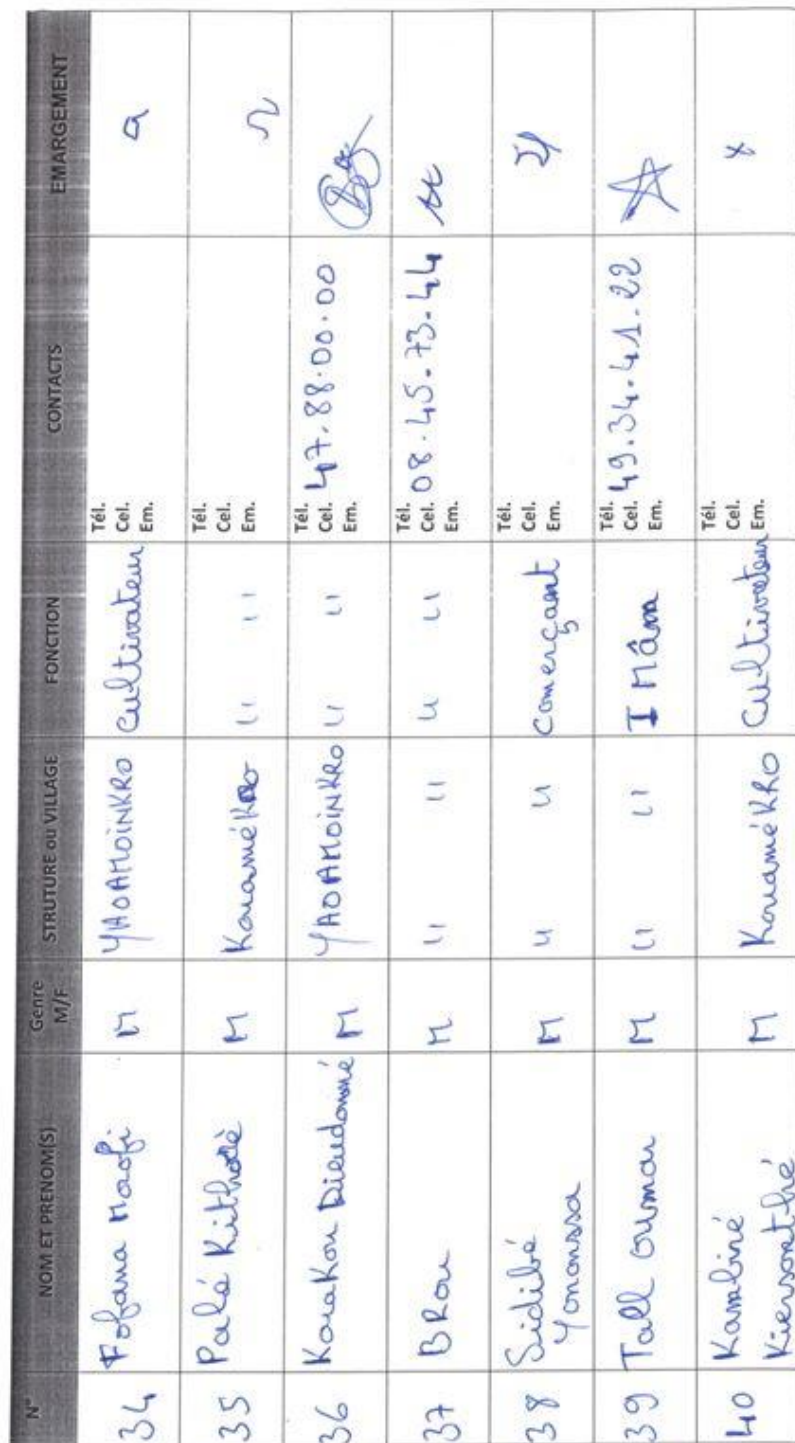 N° NOM ET PRENOM(S) Genre M/F STRUTURE ou VILLAGE FONCTION CONTACTS EMARGEMENT
34 Fofana Maofi M YAOAMOINKRO Cultivateur Tél. Cel. Em.
35 Palé Kithotè M KouaméKro " " Tél. Cel. Em.
36 Kouakou Dieudonné M YAOAMOINKRO " " Tél. Cel. 47.88.00.00 Em.
37 BRou M " " " " Tél. Cel. 08.45.73.44 Em.
38 Sidibé Yonoussa M " " Comerçant Tél. Cel. Em.
39 Tall Oumar M " " IMâm Tél. Cel. 49.34.41.22 Em.
40 Kambiré Kiersonthé M KouaméKRO Cultivateur Tél. Cel. Em.